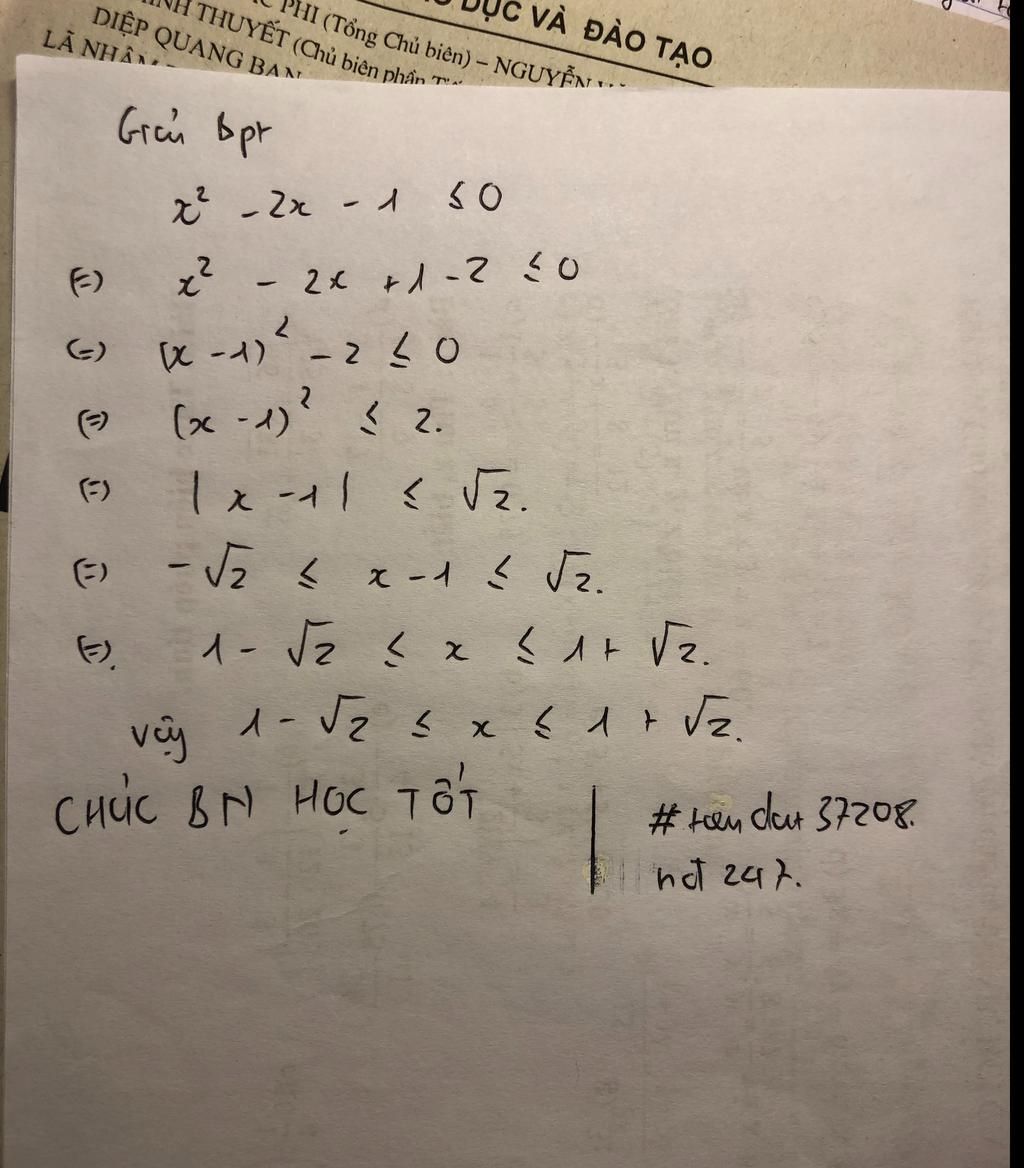 DỤC VÀ ĐÀO TẠO
PHI (Tổng Chủ biên) – NGUYỄN
THUYẾT (Chủ biên phần
DIỆP QUANG BAN
LÃ NHÂM
Giải Bpt
x² - 2x - 1 ≤ 0
(=) x² - 2x + 1 - 2 ≤ 0
(=) (x - 1)² - 2 ≤ 0
(=) (x - 1)² ≤ 2.
(=) | x - 1 | ≤ √2.
(=) -√2 ≤ x - 1 ≤ √2.
(=). 1 - √2 ≤ x ≤ 1 + √2.
vậy 1 - √2 ≤ x ≤ 1 + √2.
CHÚC BN HỌC TỐT
37208.
247.